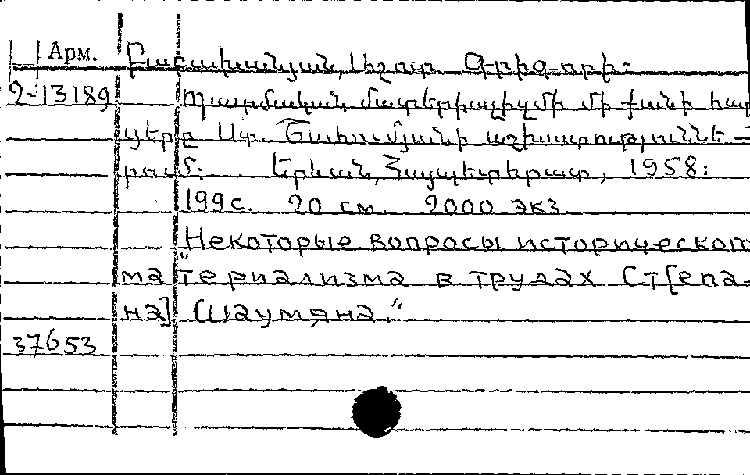 Арм. Բաշախանյան, Աշոտ Գրիգորի։
2-13189 Պատմական մատերիալիզմի մի քանի հար
ցերը Ստ. Շահումյանի աշխատություննե-
րում։ Երևան, Հայպետհրատ, 1958։
199 с. 20 см 2000 экз
"Некоторые вопросы историческог
материализма в трудах Ст[епа-
на] Шаумяна"
37653